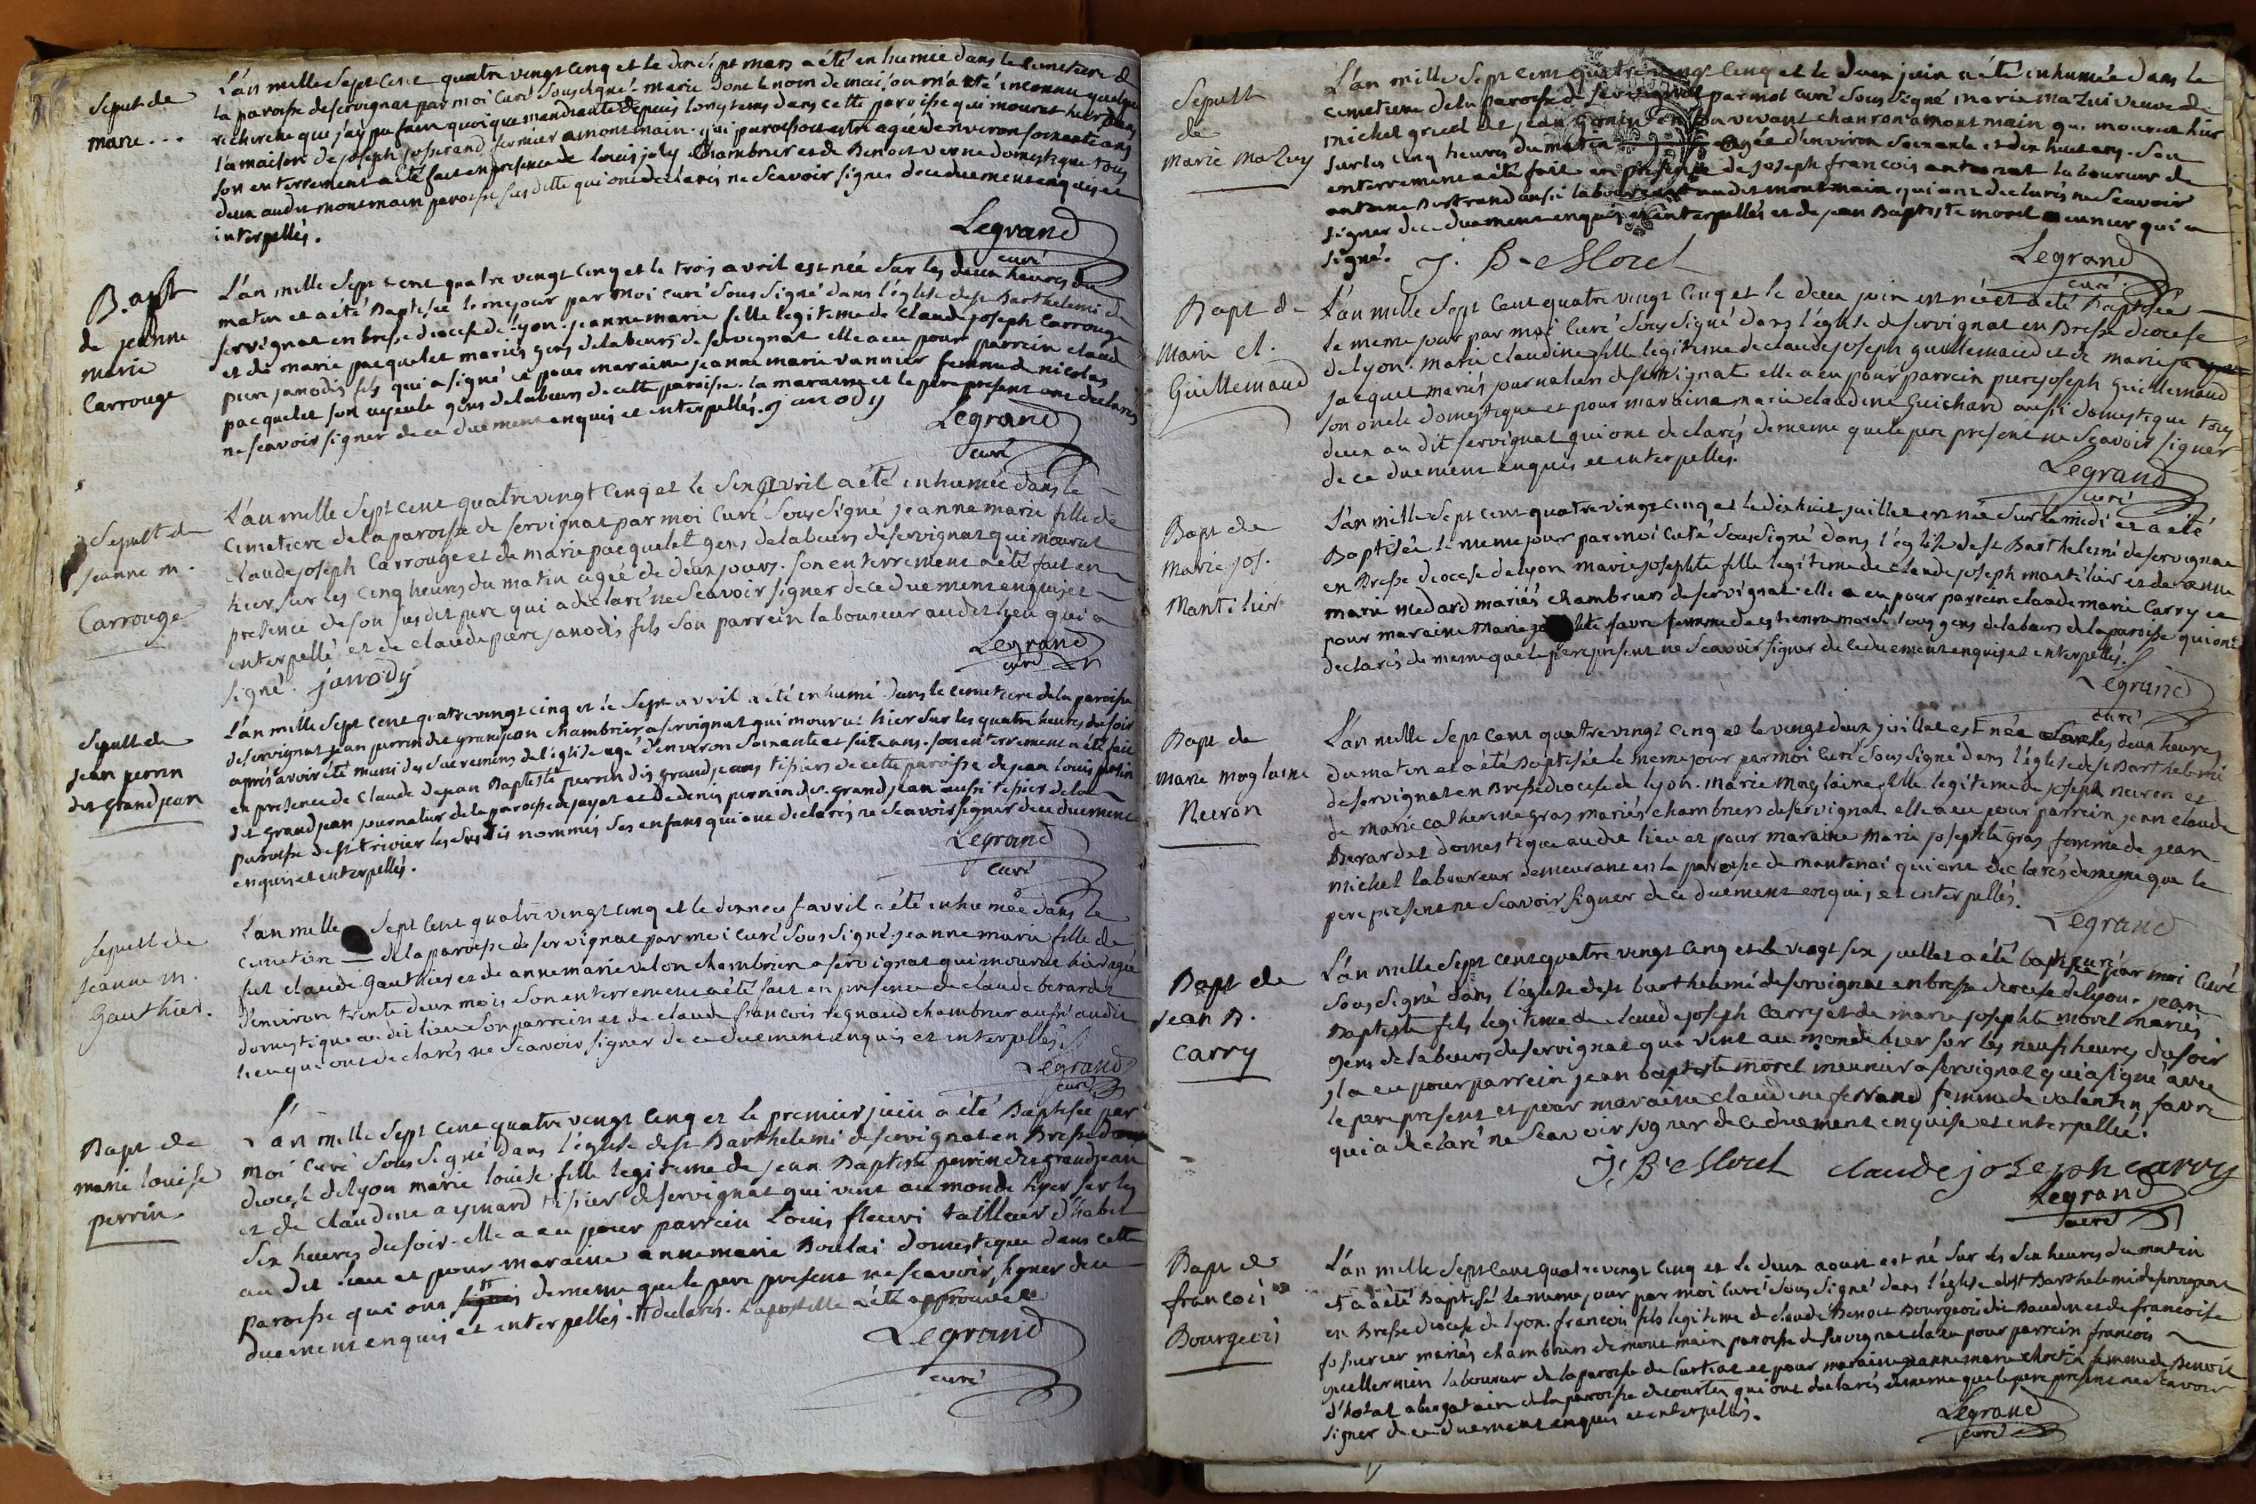 Sepult de
marie...
L'an mille Sept Cent quatre vingt Cinq et le dix Sept mars a été inhumée dans le cimetiere de
la paroisse de servignat par moi Curé Soussigné marie dont le nom de maison m'a été inconnu quelque
recherche que j'ay pu faire quoique mendiante depuis longtems dans cette paroisse qui mourut hier dans
la maison de joseph josserand fermier a montmain. qui paroissoit estre agée d'environ soixante ans
son enterrement a été fait en presence de Louis joly chambrier et de Benoit verne domestique tous
deux audit montmain paroisse susditte qui ont declarés ne Scavoir signer de ce duement enquis et
interpellés.
Legrand
curé
Bapt
de jeanne
marie
Carrouge
L'an mille Sept Cent quatre vingt Cinq et le trois avril est née Sur les deux heures du
matin et a été Baptisée le mejour par moi curé Sous Signé dans l'église de st Barthelemi de
servignat en bresse diocese de Lyon. jeanne marie fille legitime de Claude joseph Carrouge
et de marie pacquelet mariés gens de labeurs de servignat elle a eu pour parrein claude
piere janodis fils qui a signé et pour maraine jeanne marie vannier femme de nicolas
pacquelet son ayeule gens de labeurs de cette paroisse. la maraine et le pere present ont declarés
ne scavoir signer de ce duement enquis et interpellés. janody
Legrand
curé
Sepult de
jeanne m.
Carrouge
L'an mille Sept Cent quatre vingt Cinq et le Six avril a été inhumée dans le
Cimetiere de la paroisse de servignat par moi Curé Sous Signé jeanne marie fille de
Claude joseph Carrouge et de marie pacquelet gens de labeurs de servignat qui mourut
hier sur les Cinq heures du matin agée de deux jours. son enterrement a été fait en
presence de son susdit pere qui a declaré ne Scavoir signer de ce duement enquis et
interpellé et de Claude piere janodis fils Son parrein laboureur audit lieu qui a
signé. janody
Legrand
curé
Sepult de
jean perrin
dit grandjean
L'an mille Sept Cent quatre vingt cinq et le Sept avril a été inhumé dans le cimetiere de la paroisse
de servignat jean perrin dit grandjean chambrier a servignat qui mourut hier sur les quatre heures du soir
apres avoir été muni des Sacremens de l'église agé d'environ Soixante et Seize ans. son enterrement a été fait
en presence de Claude de jean Baptiste perrin dis grand jeans tissiers de cette paroisse de jean Louis perrin
dit grand jean journalier de la paroisse de jayat et de denis perrin dit grand jean aussi tissier de la
paroisse de st trivier les susdis nommés Ses enfans qui ont declarés ne Scavoir signer de ce duement
enquis et interpellés.
Legrand
curé
Sepult de
jeanne m.
Gauthier.
L'an mille Sept Cent quatre vingt cinq et le dixneuf avril a été inhumée dans le
cimetiere de la paroisse de servignat par moi curé Sous Signé jeanne marie fille de
feu Claude Gauthier et de anne marie velon chambriere a servignat qui mourut hier agée
d'environ trente deux mois Son enterrement a été fait en presence de Claude berardet
domestique audit lieu Son parrein et de claude francois regnaud chambrier aussi audit
lieu qui ont declarés ne Scavoir signer de ce duement enquis et interpellés.
Legrand
curé
Bapt de
marie louise
perrin.
L'an mille Sept Cent quatre vingt Cinq et le premier juin a été Baptisée par
moi Curé Sous Signé dans l'église de st Barthelemi de servignat en Bresse
diocese de Lyon marie louise fille legitime de jean Baptiste perrin dit grandjean
et de Claudine aymard tissier de servignat qui vint au monde hyer sur les
Six heures du soir. elle a eu pour parrein Louis fleuri tailleur d'habit
au dit lieu et pour maraine anne marie Boulai domestique dans cette
paroisse qui ont de meme que le pere present ne scavoir signer de ce
duement enquis et interpellés. # declarés. l'apostille a été approuvée
Legrand
curé
Sepult
de
Marie Mazuy
L'an mille Sept Cent quatre vingt Cinq et le deux juin a été inhumée dans le
cimetiere de la paroisse de servignat par moi curé Sous Signé marie Mazui veuve de
michel griel et jean gonin en Son vivant charron a mont main qui mourut hier
sur les Cinq heures du matin agée d'environ Soixante et dix huit ans. Son
enterrement a été fait en presence de joseph francois antoinat laboureur de
antoine Bertrand aussi laboureur au dit mont main qui ont declarés ne Scavoir
signer de ce duement enquis et interpellés et de jean Baptiste morel meunier qui a
signé.
J. B. Morel
Legrand
curé
Bapt de
Marie Cl.
Guillemaud
L'an mille Sept Cent quatre vingt Cinq et le deux juin est née et a été Baptisée
le meme jour par moi Curé Sous Signé dans l'église de servignat en Bresse diocese
de Lyon. Marie Claudine fille legitime de claude joseph guillemaud et de marie
jacquet mariés journaliers de servignat elle a eu pour parrein pierre joseph guillemaud
son oncle domestique et pour maraine marie claudine Guichard aussi domestique tous
deux au dit servignat qui ont declarés de meme que le pere present ne Scavoir signer
de ce duement enquis et interpellés.
Legrand
curé
Bapt de
Marie jos.
Mantilier
L'an mille Sept Cent quatre vingt cinq et le dix huit juillet est née Sur le midi et a été
Baptisée le meme jour par moi Curé Sous Signé dans l'église de st Barthelemi de servignat
en Bresse diocese de Lyon marie josephte fille legitime de Claude joseph mantilier et de anne
marie medard mariés chambriers de servignat. elle a eu pour parrein claude marie Carry et
pour maraine marie favre femme de etienne morel tous gens de labeurs de la paroisse qui ont
declarés de meme que le pere present ne Scavoir signer de ce duement enquis et interpellés.
Legrand
curé
Bapt de
marie maglaine
Neeron
L'an mille Sept Cent quatre vingt cinq et le vingt deux juillet est née sur les deux heures
du matin et a été Baptisée le meme jour par moi Curé Sous Signé dans l'église de st Barthelemi
de servignat en Bresse diocese de Lyon. Marie Maglaine fille legitime de joseph neeron et
de marie Catherine gras mariés chambriers de servignat elle a eu pour parrein jean claude
Berardet domestique audit lieu et pour maraine Marie josephte gras femme de jean
michel laboureur demeurant en la paroisse de mantenai qui ont declarés de meme que le
pere present ne Scavoir signer de ce duement enquis et interpellés.
Legrand
curé
Bapt de
Jean B.
Carry
L'an mille Sept Cent quatre vingt Cinq et le vingt six juillet a été baptisé par moi Curé
Sous Signé dans l'église de st barthelemi de servignat en bresse diocese de Lyon. jean
Baptiste fils legitime de claude joseph Carry et de marie josephte morel mariés
gens de labeurs de servignat qui vint au monde hier sur les neuf heures du soir
il a eu pour parrein jean baptiste morel meunier a servignat qui a signé avec
le pere present et pour maraine claudine ferrand femme de valentin favre
qui a declaré ne Scavoir signer de ce duement enquise et interpellée.
J. B. Morel claude joseph carry
Legrand
curé
Bapt de
francois
Bourgeois
L'an mille Sept Cent quatre vingt Cinq et le deux aoust est né Sur les Six heures du matin
et a été Baptisé le meme jour par moi Curé Sous Signé dans l'église de st Barthelemi de servignat
en Bresse diocese de Lyon. francois fils legitime de claude Benoit Bourgeois dit Baudin et de francoise
mariés chambriers de mont main paroisse de servignat il a eu pour parrein francois
guillermin laboureur de la paroisse de Curtiat et pour maraine jeanne marie femme de Benoit
d'hotal abergataire de la paroisse de courtes qui ont declarés de meme que le pere present ne Scavoir
signer de ce duement enquis et interpellés.
Legrand
curé